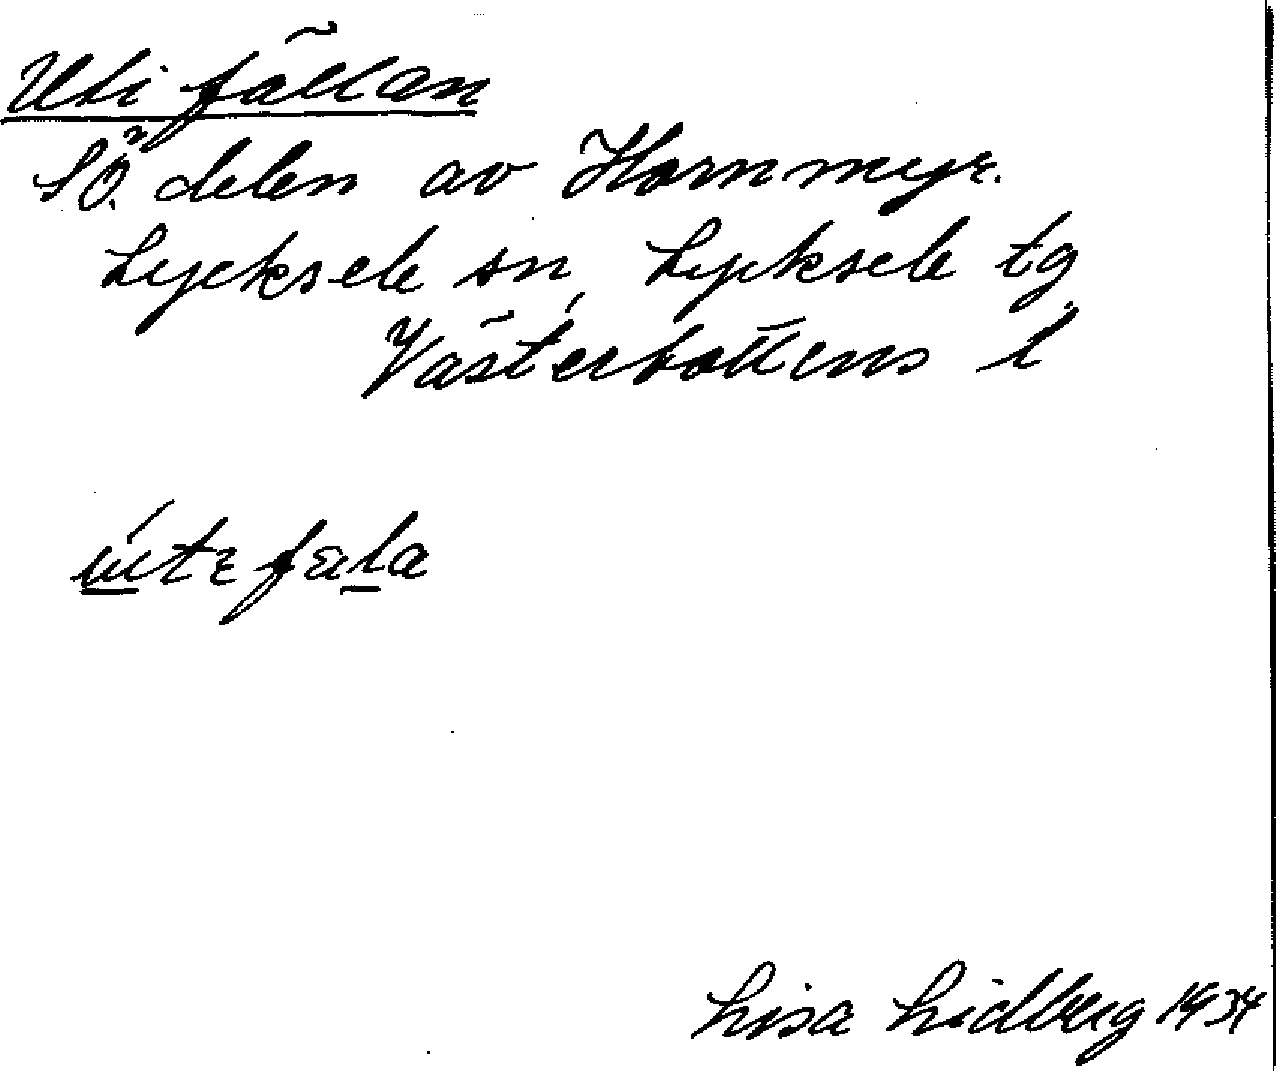 Uti fällan
SÖ. delen av Hornmyr.
Lycksele sn, Lycksele tg
Västerbottens l
Lisa Lidberg 1934